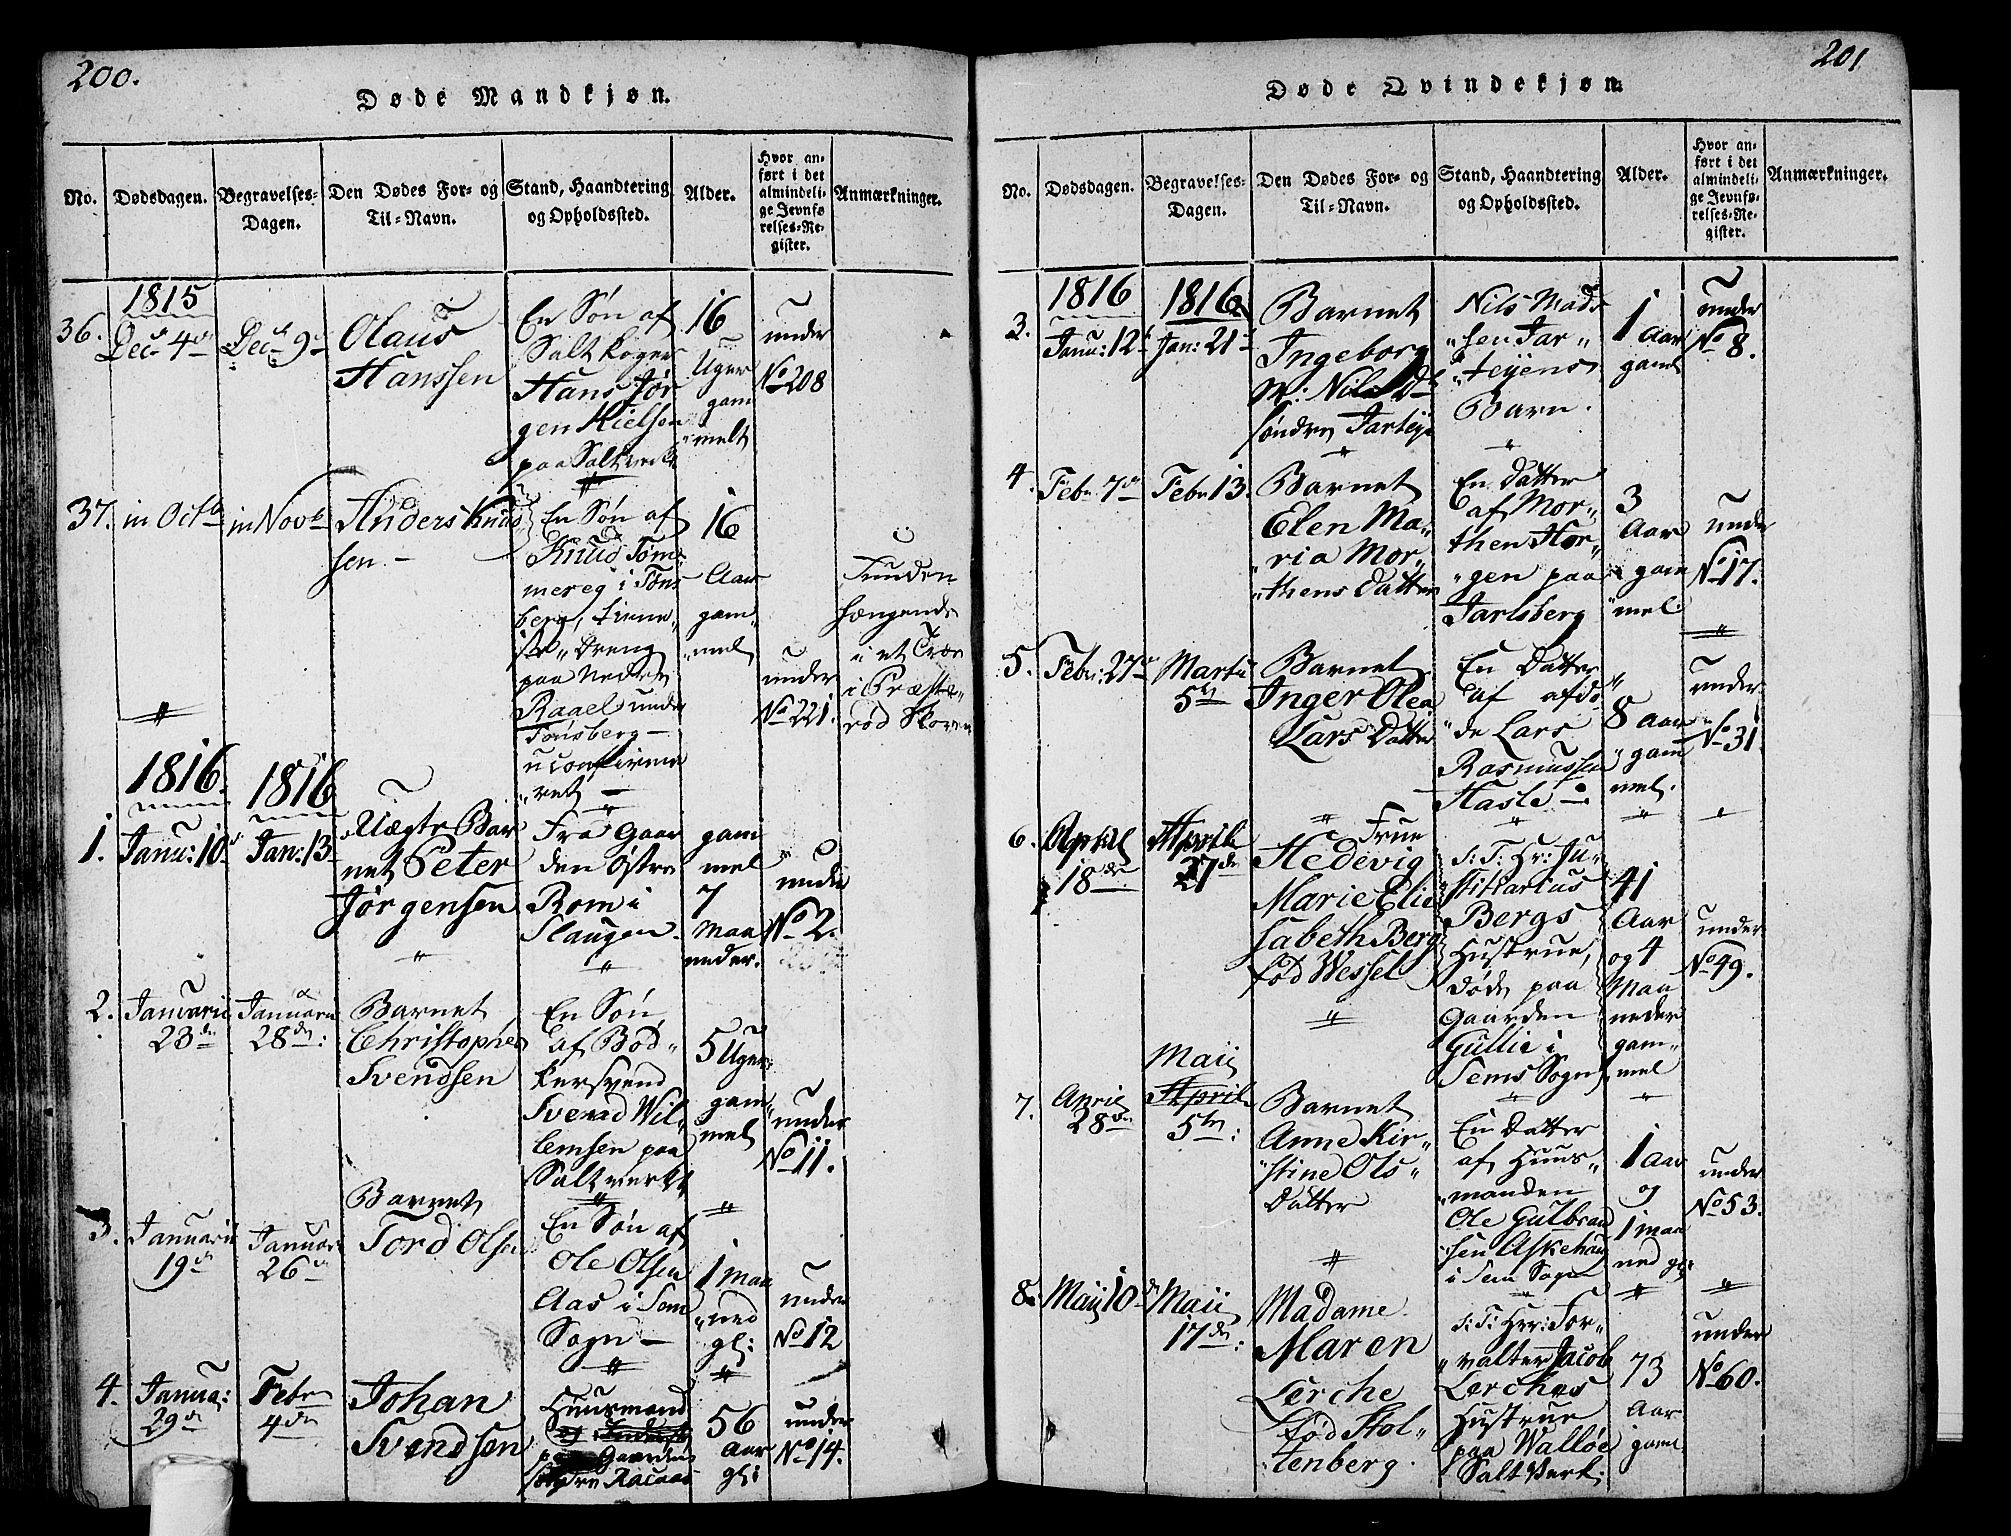 200.
Døde Mandkjøn.
No.
Dødsdagen.
Begravelses-
Dagen.
Den Dødes For- og
Til-Navn.
Stand, Haandtering
og Opholdssted.
Alder.
Hvor an-
ført i det
almindeli-
ge Jevnfø-
relses-Re-
gister.
Anmærkninger.
1815
36.
Dec. 4de
Dec. 9de
Olaus
Hanssen
En Søn af
Saltkoger
Hans Jør
gen Nielsen
paa Saltverket
16
Uger
gam
melt
under
No 208
37.
in Octb
in Novb
Anders Knud
sen.
En Søn af
Knud Tøm
mereg i Tøns
berg, tiene
Dreng
paa Nedre
Raael under
Tønsberg
uconfirme
ret
16
Aar
gam
mel
under
No 221.
Funden
hængende
i et Træe
i Præste
rød Skoven
1816.
1816
1.
Janu: 10de
Jan: 13
Uægte Bar
net Peter
Jørgensen
Fra Gaar
den Østre
Rom i
Slaugen
gam
mel
7
Maa
neder.
under
No 2.
2.
Januarii
23de
Januarii
28de:
Barnet
Christopher
Svendsen
En Søn
af Bød
kersvend
Svend Wil
lemsen paa
Saltverket
5 Uger
gam
mel
under
No 11.
3.
Januarii
19de
Januarii
26de
Barnet
Tord Olsen
En Søn af
Ole Olsen
Aas i Sem
Sogn
1 Maa
ned
gl:
under
No 12
4.
Janua:
29de
Febr
4de
Johan
Svendsen
Huusmand
paa Gaarden
søndre Racaas
56
Aar
gl:
under
No 14.
201
Døde Qvindekjøn.
No.
Dødsdagen.
Begravelses-
Dagen.
Den Dødes For- og
Til-Navn.
Stand, Haandtering
og Opholdssted.
Alder.
Hvor an-
ført i det
almindeli-
ge Jevnfø-
relses-Re-
gister.
Anmærkninger.
1816
1816
3.
Janu: 12te
Jan: 21de
Barnet
Ingeborg
M: Nils D
søndre Jarteje
Nils Mads
sen Jar
tejens
Barn.
1 Aar
gaml
under
No 8.
4.
Febr 7de
Febr 13.
Barnet
Elen Ma
ria Mor
thens Datter
En Datter
af Mor
then Hor
gen paa
Jarlsberg
3
Aar
gam
mel:
under
No 17.
5.
Febr: 27de
Martii
5te
Barnet
Inger Olea
Lars Datter
En Datter
af afdø
de Lars
Rasmussen
Hasle
8 Aar
gam
mel.
under
No 31
6.
April
18de
Aprile
27de
Frue
Hedevig
Marie Elie
sabeth Berg
fød Wessel
S: T: Hr: Ju
stitiarius
Bergs
Hustrue,
døde paa
Gaarden
Gullie i
Sems Sogn
41
Aar
og 4
Maa
neder
gam
mel
under
No 49.
7.
April
28de
Maii
April
5te:
Barnet
Anne Kir
stine Ols
Datter
En Datter
af Huus
manden
Ole Gulbrand
sen Askehau
i Sem Sogn
1 Aar
og
1 Maa
ned gl:
under
No 53.
8.
Maij 10de
Maii
17de:
Madame
Maren
Lerche
fød Stol
tenberg.
S: T: Hrr: For
valter Jacob
Lerches
Hustrue
paa Walløe
Salt Værk.
73
Aar
gaml.
under
No 60.